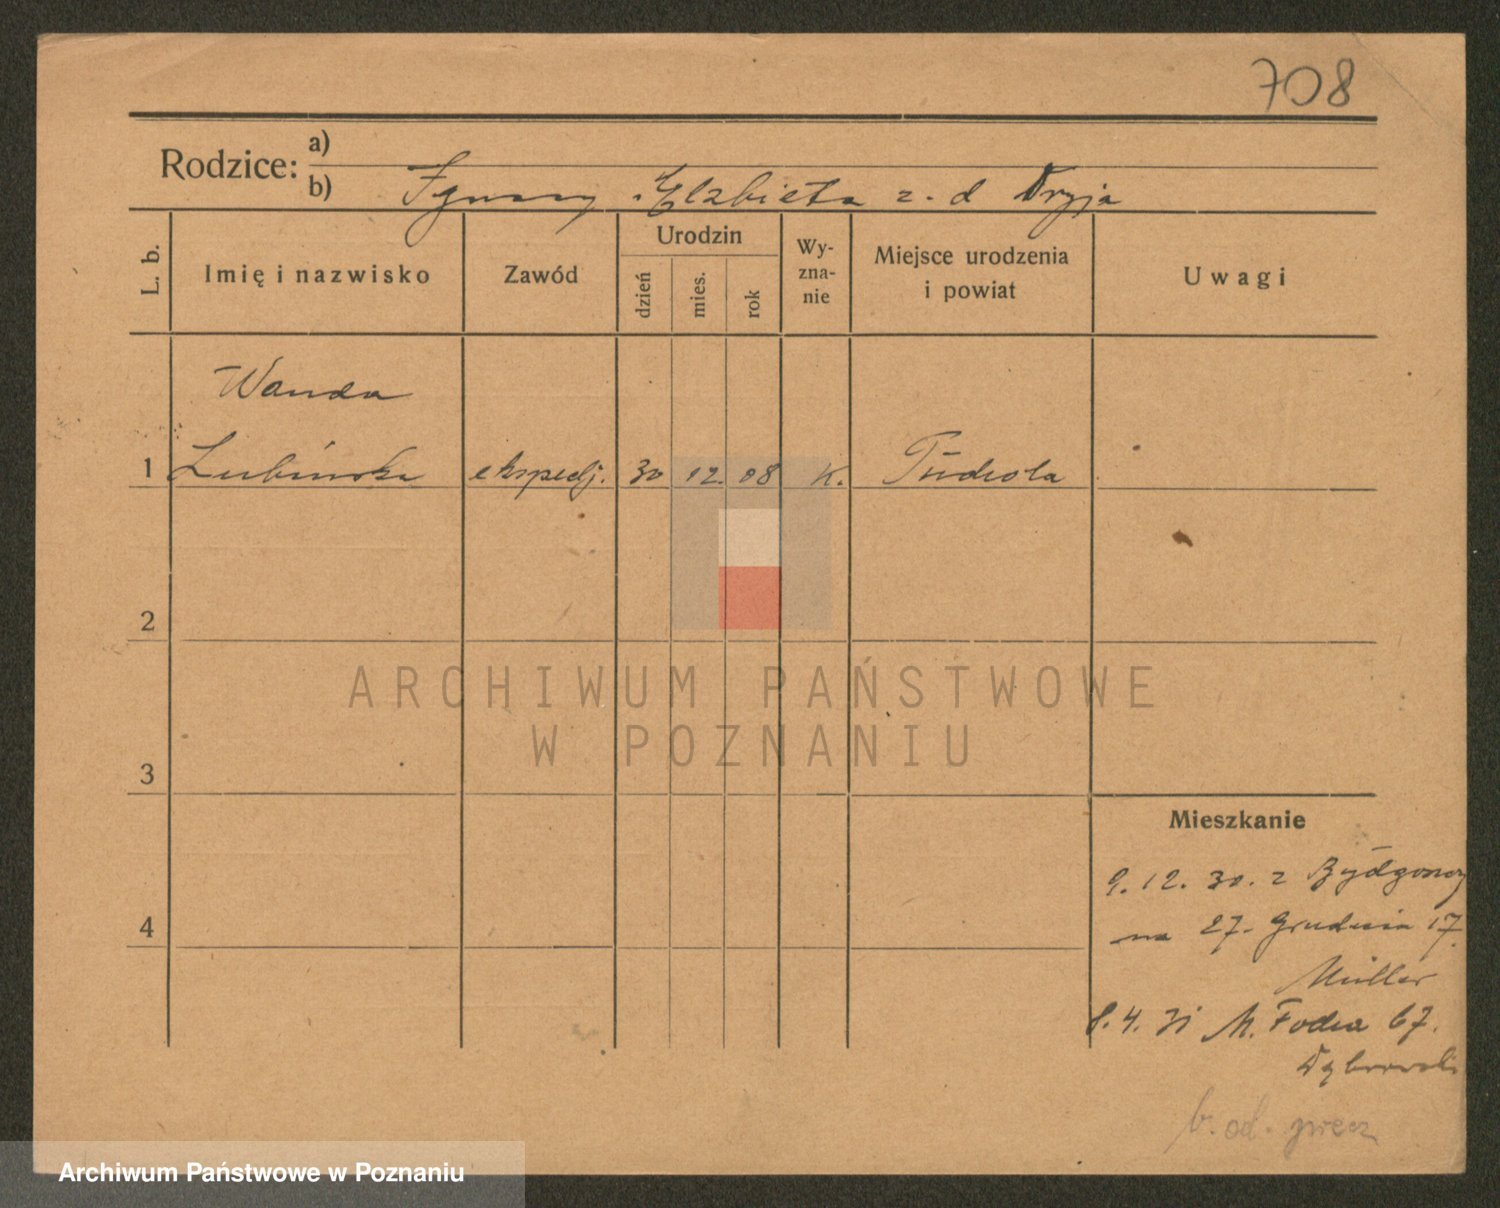 708
Rodzice: a)
b) Ignacy . Elzbieta z. d Dryja
L. b. Imię i nazwisko Zawód Urodzin dzień mies. rok Wy-zna-nie Miejsce urodzenia i powiat Uwagi
Wanda
1 Lubińska ekspedj. 30 12. 08 K.
2
ARCHIWUM PAŃSTWOWE
W POZNANIU
3
Mieszkanie
9. 12. 30. z Bydgoszczy
na 27. Grudnia 17.
4
Müller
8. 4. 31 M. Focha 67.
Dąbrowski
b. od.
Archiwum Państwowe w Poznaniu